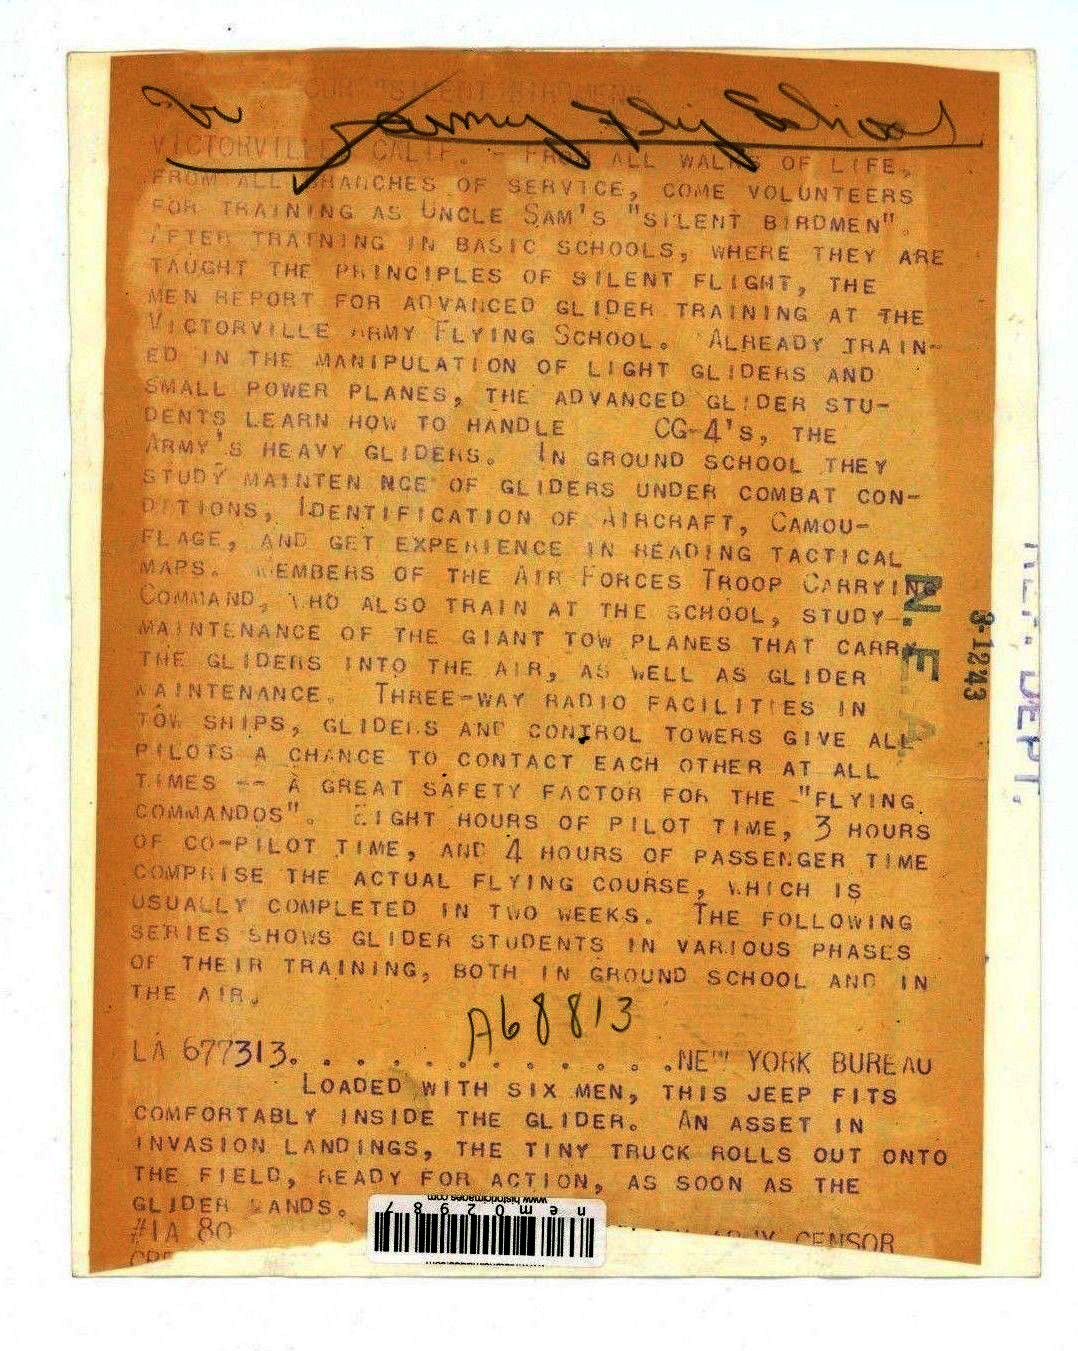 OUR "SILENT BIRDMEN"
Army Fly School
VICTORVILLE, CALIF. - FROM ALL WALKS OF LIFE,
FROM ALL BRANCHES OF SERVICE, COME VOLUNTEERS
FOR TRAINING AS UNCLE SAM'S "SILENT BIRDMEN".
AFTER TRAINING IN BASIC SCHOOLS, WHERE THEY ARE
TAUGHT THE PRINCIPLES OF SILENT FLIGHT, THE
MEN REPORT FOR ADVANCED GLIDER TRAINING AT THE
VICTORVILLE ARMY FLYING SCHOOL. ALREADY TRAIN-
ED IN THE MANIPULATION OF LIGHT GLIDERS AND
SMALL POWER PLANES, THE ADVANCED GLIDER STU-
DENTS LEARN HOW TO HANDLE CG-4'S, THE
ARMY'S HEAVY GLIDERS. IN GROUND SCHOOL THEY
STUDY MAINTEN NCE OF GLIDERS UNDER COMBAT CON-
DITIONS, IDENTIFICATION OF AIRCRAFT, CAMOU-
FLAGE, AND GET EXPERIENCE IN READING TACTICAL
MAPS. MEMBERS OF THE AIR FORCES TROOP CARRYING
COMMAND, WHO ALSO TRAIN AT THE SCHOOL, STUDY
MAINTENANCE OF THE GIANT TOW PLANES THAT CARRY
THE GLIDERS INTO THE AIR, AS WELL AS GLIDER
MAINTENANCE. THREE-WAY RADIO FACILITIES IN
TOW SHIPS, GLIDERS AND CONTROL TOWERS GIVE ALL
PILOTS A CHANCE TO CONTACT EACH OTHER AT ALL
TIMES -- A GREAT SAFETY FACTOR FOR THE "FLYING
COMMANDOS". EIGHT HOURS OF PILOT TIME, 3 HOURS
OF CO-PILOT TIME, AND 4 HOURS OF PASSENGER TIME
COMPRISE THE ACTUAL FLYING COURSE, WHICH IS
USUALLY COMPLETED IN TWO WEEKS. THE FOLLOWING
SERIES SHOWS GLIDER STUDENTS IN VARIOUS PHASES
OF THEIR TRAINING, BOTH IN GROUND SCHOOL AND IN
THE AIR.
A68813
LA 677313. . . . . . . . . . . .NEW YORK BUREAU
LOADED WITH SIX MEN, THIS JEEP FITS
COMFORTABLY INSIDE THE GLIDER. AN ASSET IN
INVASION LANDINGS, THE TINY TRUCK ROLLS OUT ONTO
THE FIELD, READY FOR ACTION, AS SOON AS THE
GLIDER LANDS.
#1A 80 ARMY CENSOR
N.E.A.
3-1243
REF. DEPT.
nem02987
www.historicimages.com